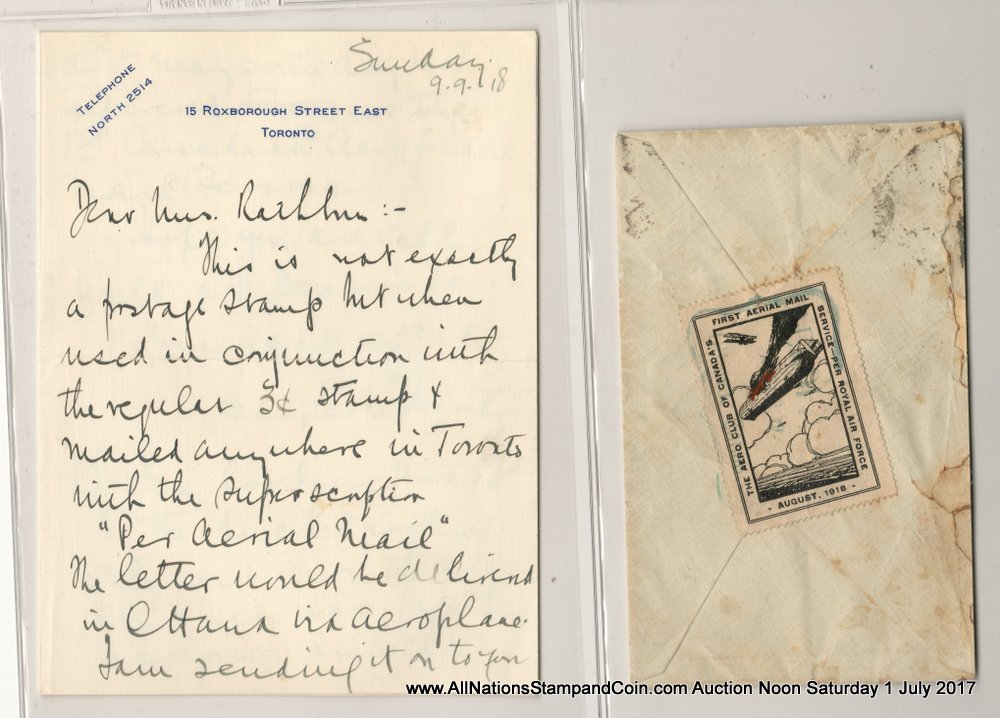 Sunday
9.9.18
TELEPHONE
NORTH 2514
15 ROXBOROUGH STREET EAST
TORONTO
Dear Mrs. Rathbun :-
This is not exactly
a postage stamp but when
used in conjunction with
the regular 3¢ stamp &
mailed anywhere in Toronto
with the superscription
"Per Aerial Mail"
the letter would be delivered
in Ottawa via aeroplane.
I am sending it on to you
FIRST AERIAL MAIL
SERVICE-PER ROYAL AIR FORCE
THE AERO CLUB OF CANADA'S
- AUGUST, 1918 -
www.AllNationsStampandCoin.com Auction Noon Saturday 1 July 2017